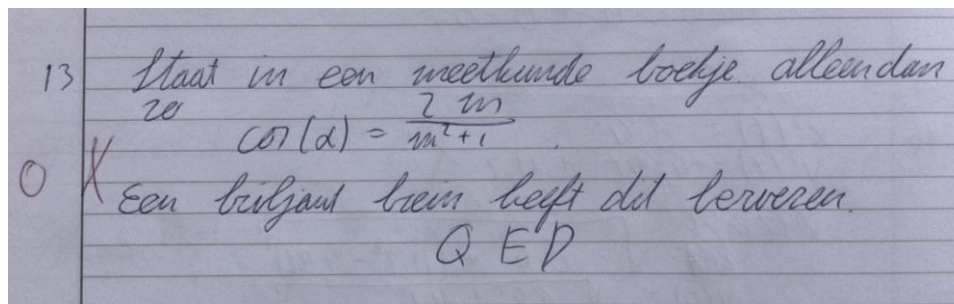 13 Staat in een meetkunde boekje alleen dan
zo
cos(α) = 2m / m²+1 .
0 X Een briljant brein heeft dit bewezen.
Q E D